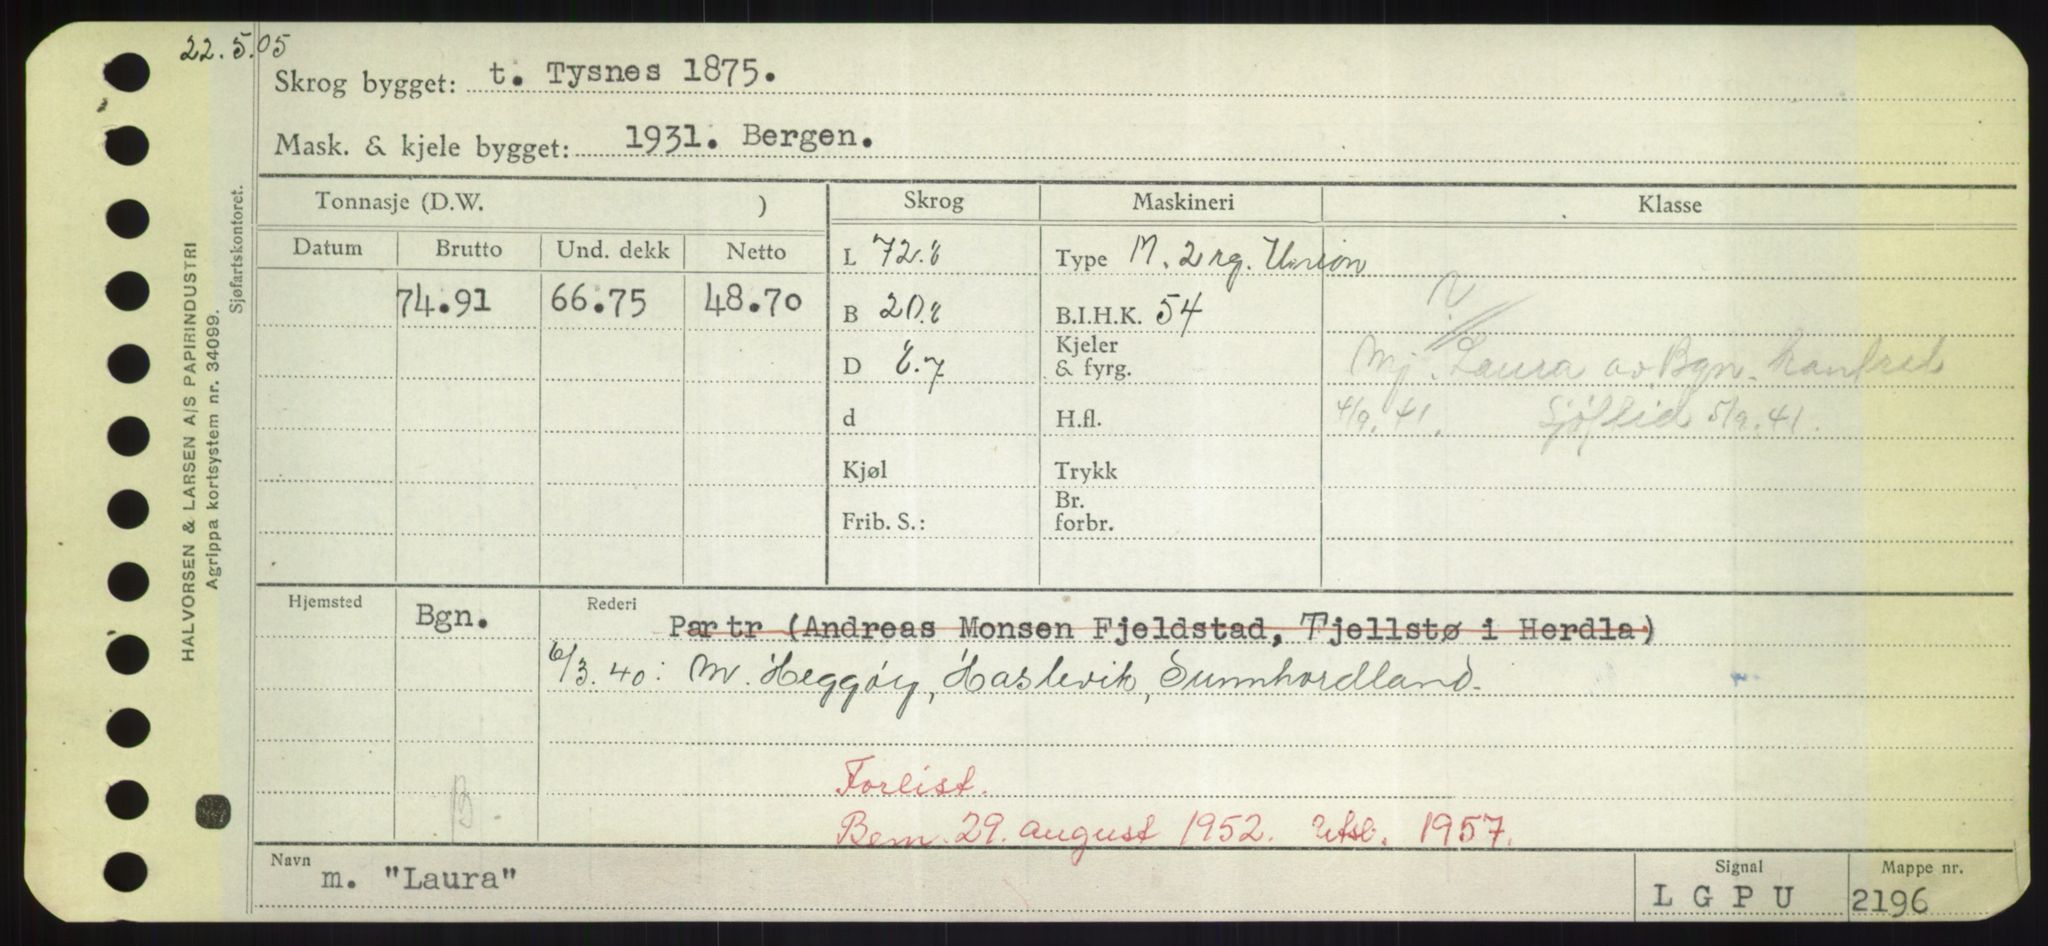 22.5.05
Skrog bygget: t. Tysnes 1875.
Mask. & kjele bygget: 1931. Bergen.
HALVORSEN & LARSEN A/S PAPIRINDUSTRI
Agrippa kortsystem nr. 34099.
Sjøfartskontoret.
Tonnasje (D.W. ) Skrog Maskineri Klasse
Datum Brutto Und. dekk Netto
L 72.8 Type M. 2 rg. Union
74.91 66.75 48.70
B 20.8 B.I.H.K. 54
D 8.7 Kjeler & fyrg.
Mj. Laura av Bgn.
d H.fl.
4/9.41. 5/9.41.
Kjøl Trykk
Frib. S.: Br. forbr.
Hjemsted Bgn. Rederi Partr (Andreas Monsen Fjeldstad, Tjellstø i Herdla)
6/3.40: M. Heggøy, Haslevik, Sunnhordland.
Forlist.
B. Bem. 29. august 1952. Utsl. 1957.
Navn m. "Laura" Signal LGPU Mappe nr. 2196